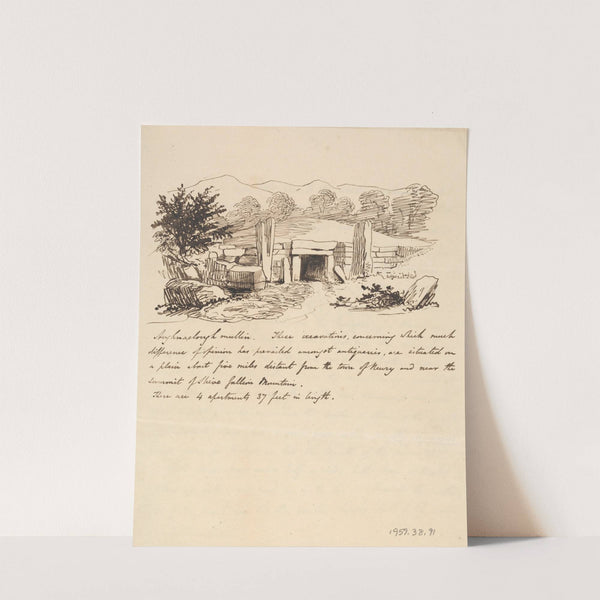 Aughnaclough mullin. These excavations, concerning which much
difference of opinion has prevailed amongst antiquaries, are situated on
a plain about five miles distant from the town of Newry and near the
summit of Slive Gullion Mountain.
There are 4 apartments 37 feet in length.
1959.38.91